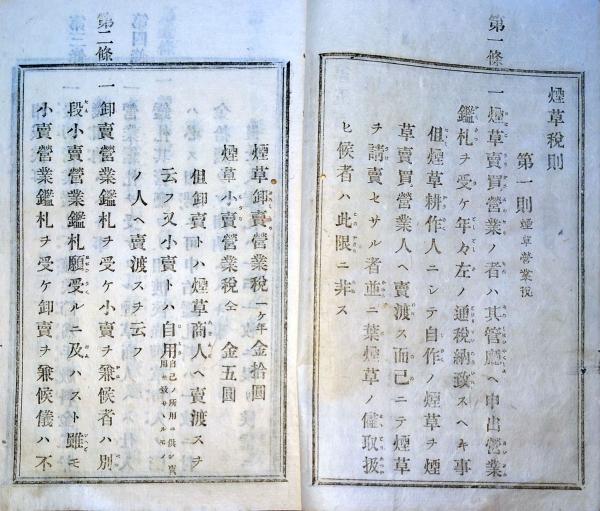 煙草税則
第一則 煙草營業税
第一條
一煙草賣買營業ノ者ハ其管廳ヘ申出營業
鑑札ヲ受ケ年々左ノ通税納致スヘキ事
但煙草耕作人ニシテ自作ノ煙草ヲ煙
草賣買營業人ヘ賣渡ス而已ニテ煙草
ヲ請賣セサル者並ニ葉煙草ノ儘取扱
ヒ候者ハ此限ニ非ス
煙草卸賣營業税 一ケ年 金拾圓
煙草小賣營業税 仝 金五圓
但卸賣トハ煙草商人ヘ賣渡スヲ
云フ又小賣トハ自用 自己ノ所用ニ供シ賣用ニ致サヽルモノ
ノ人ヘ賣渡スヲ云フ
第二條
一卸賣營業鑑札ヲ受ケ小賣ヲ兼候者ハ別
段小賣營業鑑札願受ルニ及ハスト雖モ
小賣營業鑑札ヲ受ケ卸賣ヲ兼候儀ハ不